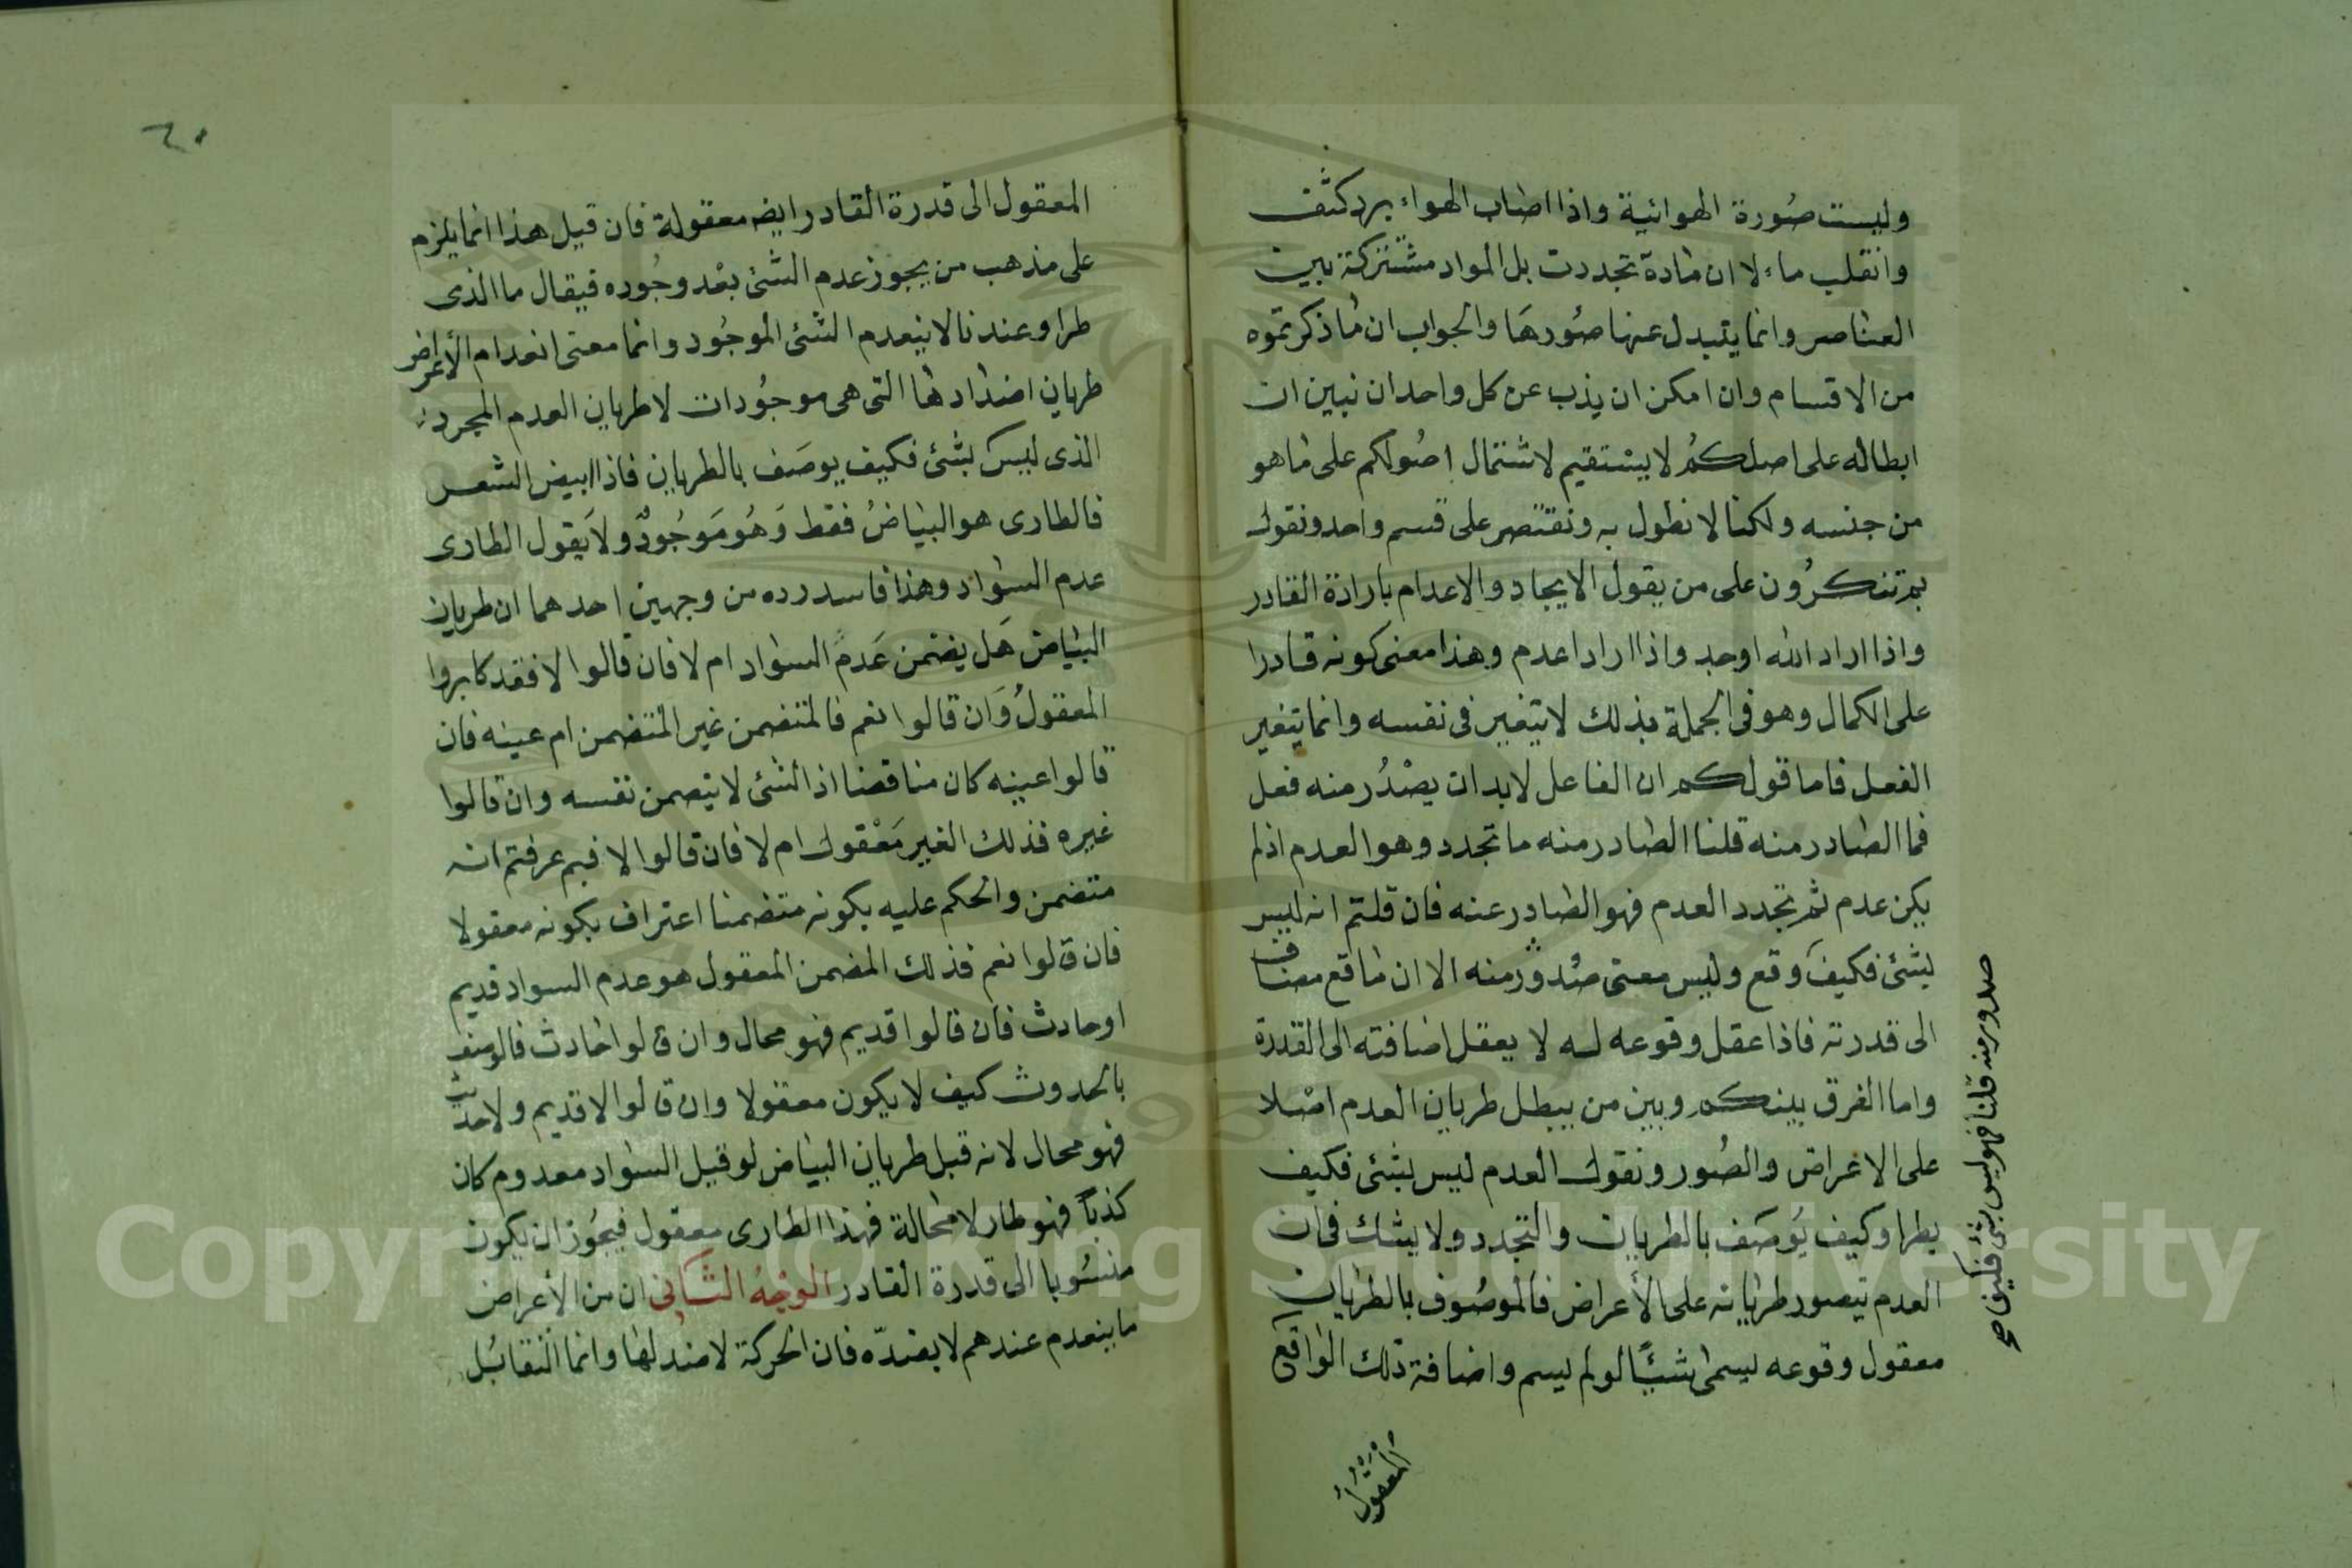 وليست صورة الهوائية واذا اصاب الهواء برد كثف
وانقلب ماء لا ان مادة تجددت بل المواد مشتركة بين
العناصر وانما يتبدل عنها صورها والجواب ان ما ذكرتموه
من الاقسام وان امكن ان يذب عن كل واحد ان نبين ان
ابطاله على اصلكم لا يستقيم لاشتمال اصولكم على ما هو
من جنسه ولكنا لا نطول به ونقتصر على قسم واحد ونقول
بم تنكرون على من يقول الايجاد والاعدام بارادة القادر
واذا اراد الله اوجد واذا اراد اعدم وهذا معنى كونه قادرا
على الكمال وهو في الجملة بذلك لا يتغير في نفسه وانما يتغير
الفعل فاما قولكم ان الفاعل لابد ان يصْدُر منه فعل
فما الصادر منه قلنا الصادر منه ما تجدد وهو العدم اذ لم
يكن عدم ثم تجدد العدم فهو الصادر عنه فان قلتم انه ليس
بشئ فكيفَ وقع وليس معنى صُدور منه الا ان ما قع مضاف
الى قدرته فاذا عقل وقوعه له لا يعقل اضافته الى القدرة
واما الفرق بينكم وبين من يبطل طريان العدم اصْلا
على الاعراض والصُور ونقول العدم ليس بشئ فكيف
يطرا وكيف يُوصَف بالطريان والتجدد ولا يشك في ان
العدم يتصور طريانه على الأعراض فالموصُوف بالطريان
معقول وقوعه يسمى شيئًا او لم يسم واضافة ذلك الواقع
المَعْقُولُ
صدور منه قلنا فهو ليس بشئ فكيف صح
٦٠
المعقول الى قدرة القادر ايضه معقولة فان قيل هذا انما يلزم
على مذهب من يجوز عدم الشئ بعْد وجُوده فيقال ما الذى
طرا وعندنا لا ينعدم الشئ الموجُود وانما معنى انعدام الأعراض
طريان اضدادها التى هى موجُودات لا طريان العدم المجرد
الذى ليسَ بشئ فكيف يوصَف بالطريان فاذا ابيض الشعر
فالطارى هو البياضُ فقط وَهُو مَوجُودٌ ولا يَقول الطارى
عدم السواد وهذا فاسد رده من وجهين احدهما ان طريان
البياض هَل يضتمن عَدمَ السواد ام لا فان قالوا لا فقد كابروا
المعقولُ وَان قالوا نعم فالمتضمن غير المتضمن ام عينه فان
قالوا عينه كان مناقضا اذ الشئ لا يتصمن نفسه وان قالوا
غيره فذلك الغير مَعْقول ام لا فان قالوا لا فبم عرفتم انه
متضمن والحكم عليه بكونه متضمنا اعتراف بكونه معقولا
فان قالوا نعم فذلك المضمن المعقول هو عدم السواد قديم
او حادث فان قالوا قديم فهو محال وان قالوا حادث فالوصف
بالحدوث كيف لا يكون معقولا وان قالوا لا قديم ولا حدث
فهو محال لانه قبل طريان البياض لو قيل السواد معدوم كان
كذبًا فهو طار لا محالة فهذا الطارى معقول فيجُوز ان يكون
منسُوبا الى قدرة القادر الوَجْهُ الثَّانى ان من الأعراض
ما ينعدم عندهم لا بضدّه فان الحركة لا ضد لها وانما التقابُل